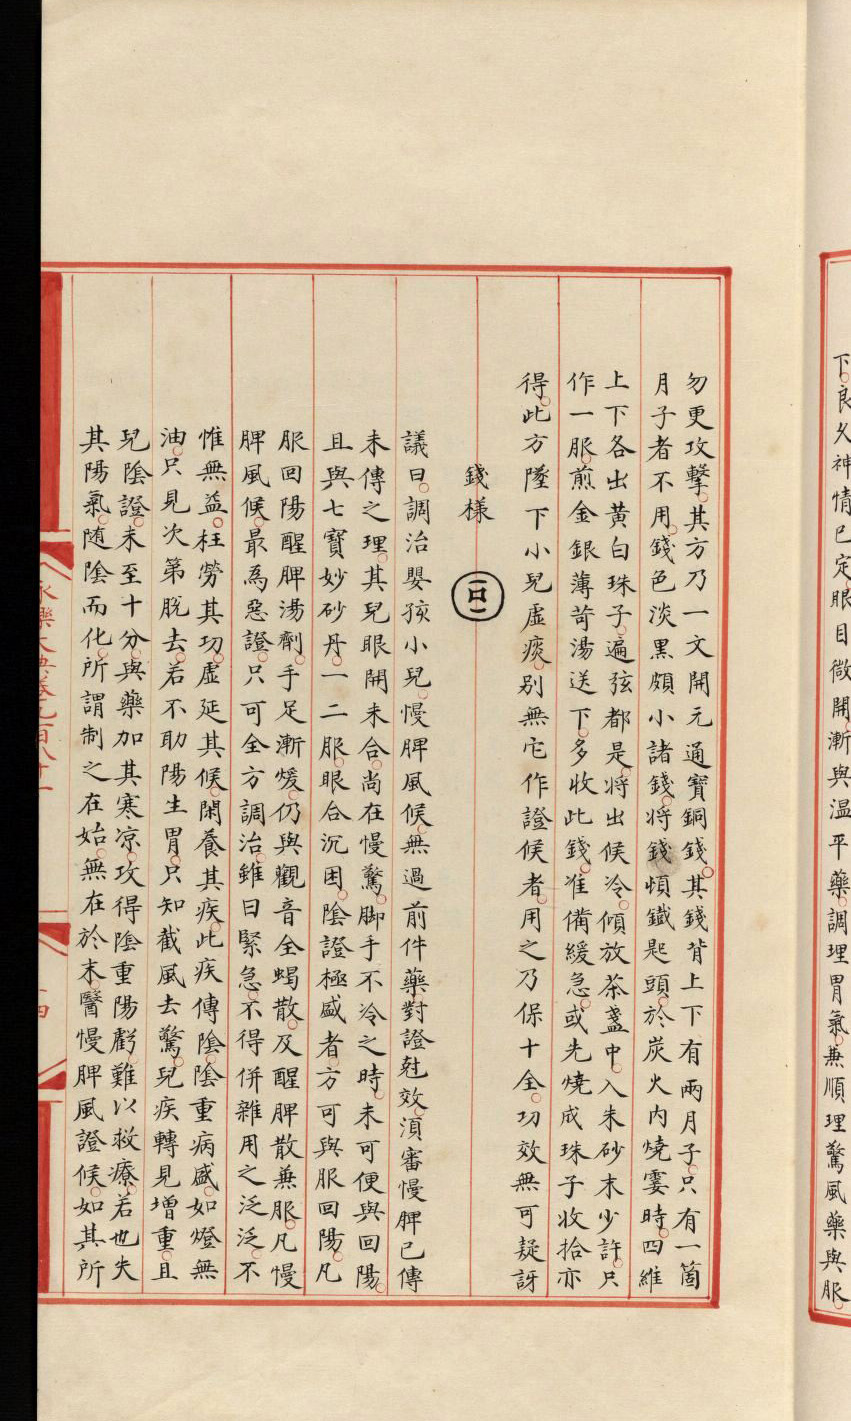 下。良久神情已定。眼目微開。漸與温平藥。調理胃氣。兼順理驚風藥與服。
勿更攻擊。其方乃一文開元通寶銅錢。其錢背上下有兩月子。只有一箇
月子者不用。錢色淡黑頗小諸錢。將錢頓鐵匙頭。於炭火内燒霎時。四維
上下各出黄白珠子。遍弦都是。將出候冷。傾放茶盞中。入朱砂末少許。只
作一服。煎金銀薄荷湯送下。多收此錢。准備緩急。或先燒成珠子收拾亦
得。此方墜下小兒虛痰。别無它作證候者。用之乃保十全。功效無可疑訝
錢樣
議曰。調治嬰孩小兒。慢脾風候。無過前件藥。對證尅效。須審慢脾已傳
未傳之理。其兒眼開未合。尚在慢驚。脚手不冷之時。未可便與回陽。
且與七寶妙砂丹。一二服。眼合沉困。陰證極盛者。方可與服回陽。凡
服回陽醒脾湯劑。手足漸煖。仍與觀音全蝎散。及醒脾散兼服。凡慢
脾風候。最爲惡證。只可全方調治。雖曰緊急。不得併雜用之泛泛。不
惟無益。枉勞其功。虛延其候。閑養其疾。此疾傳陰。陰重病盛。如燈無
油。只見次第脱去。若不助陽生胃。只知截風去驚。兒疾轉見增重。且
兒陰證。未至十分。與藥加其寒凉。攻得陰重陽虧。難以救療。若也失
其陽氣。随陰而化。所謂制之在始。無在於末。醫慢脾風證候。如其所
永樂大典卷九百八十一
十四